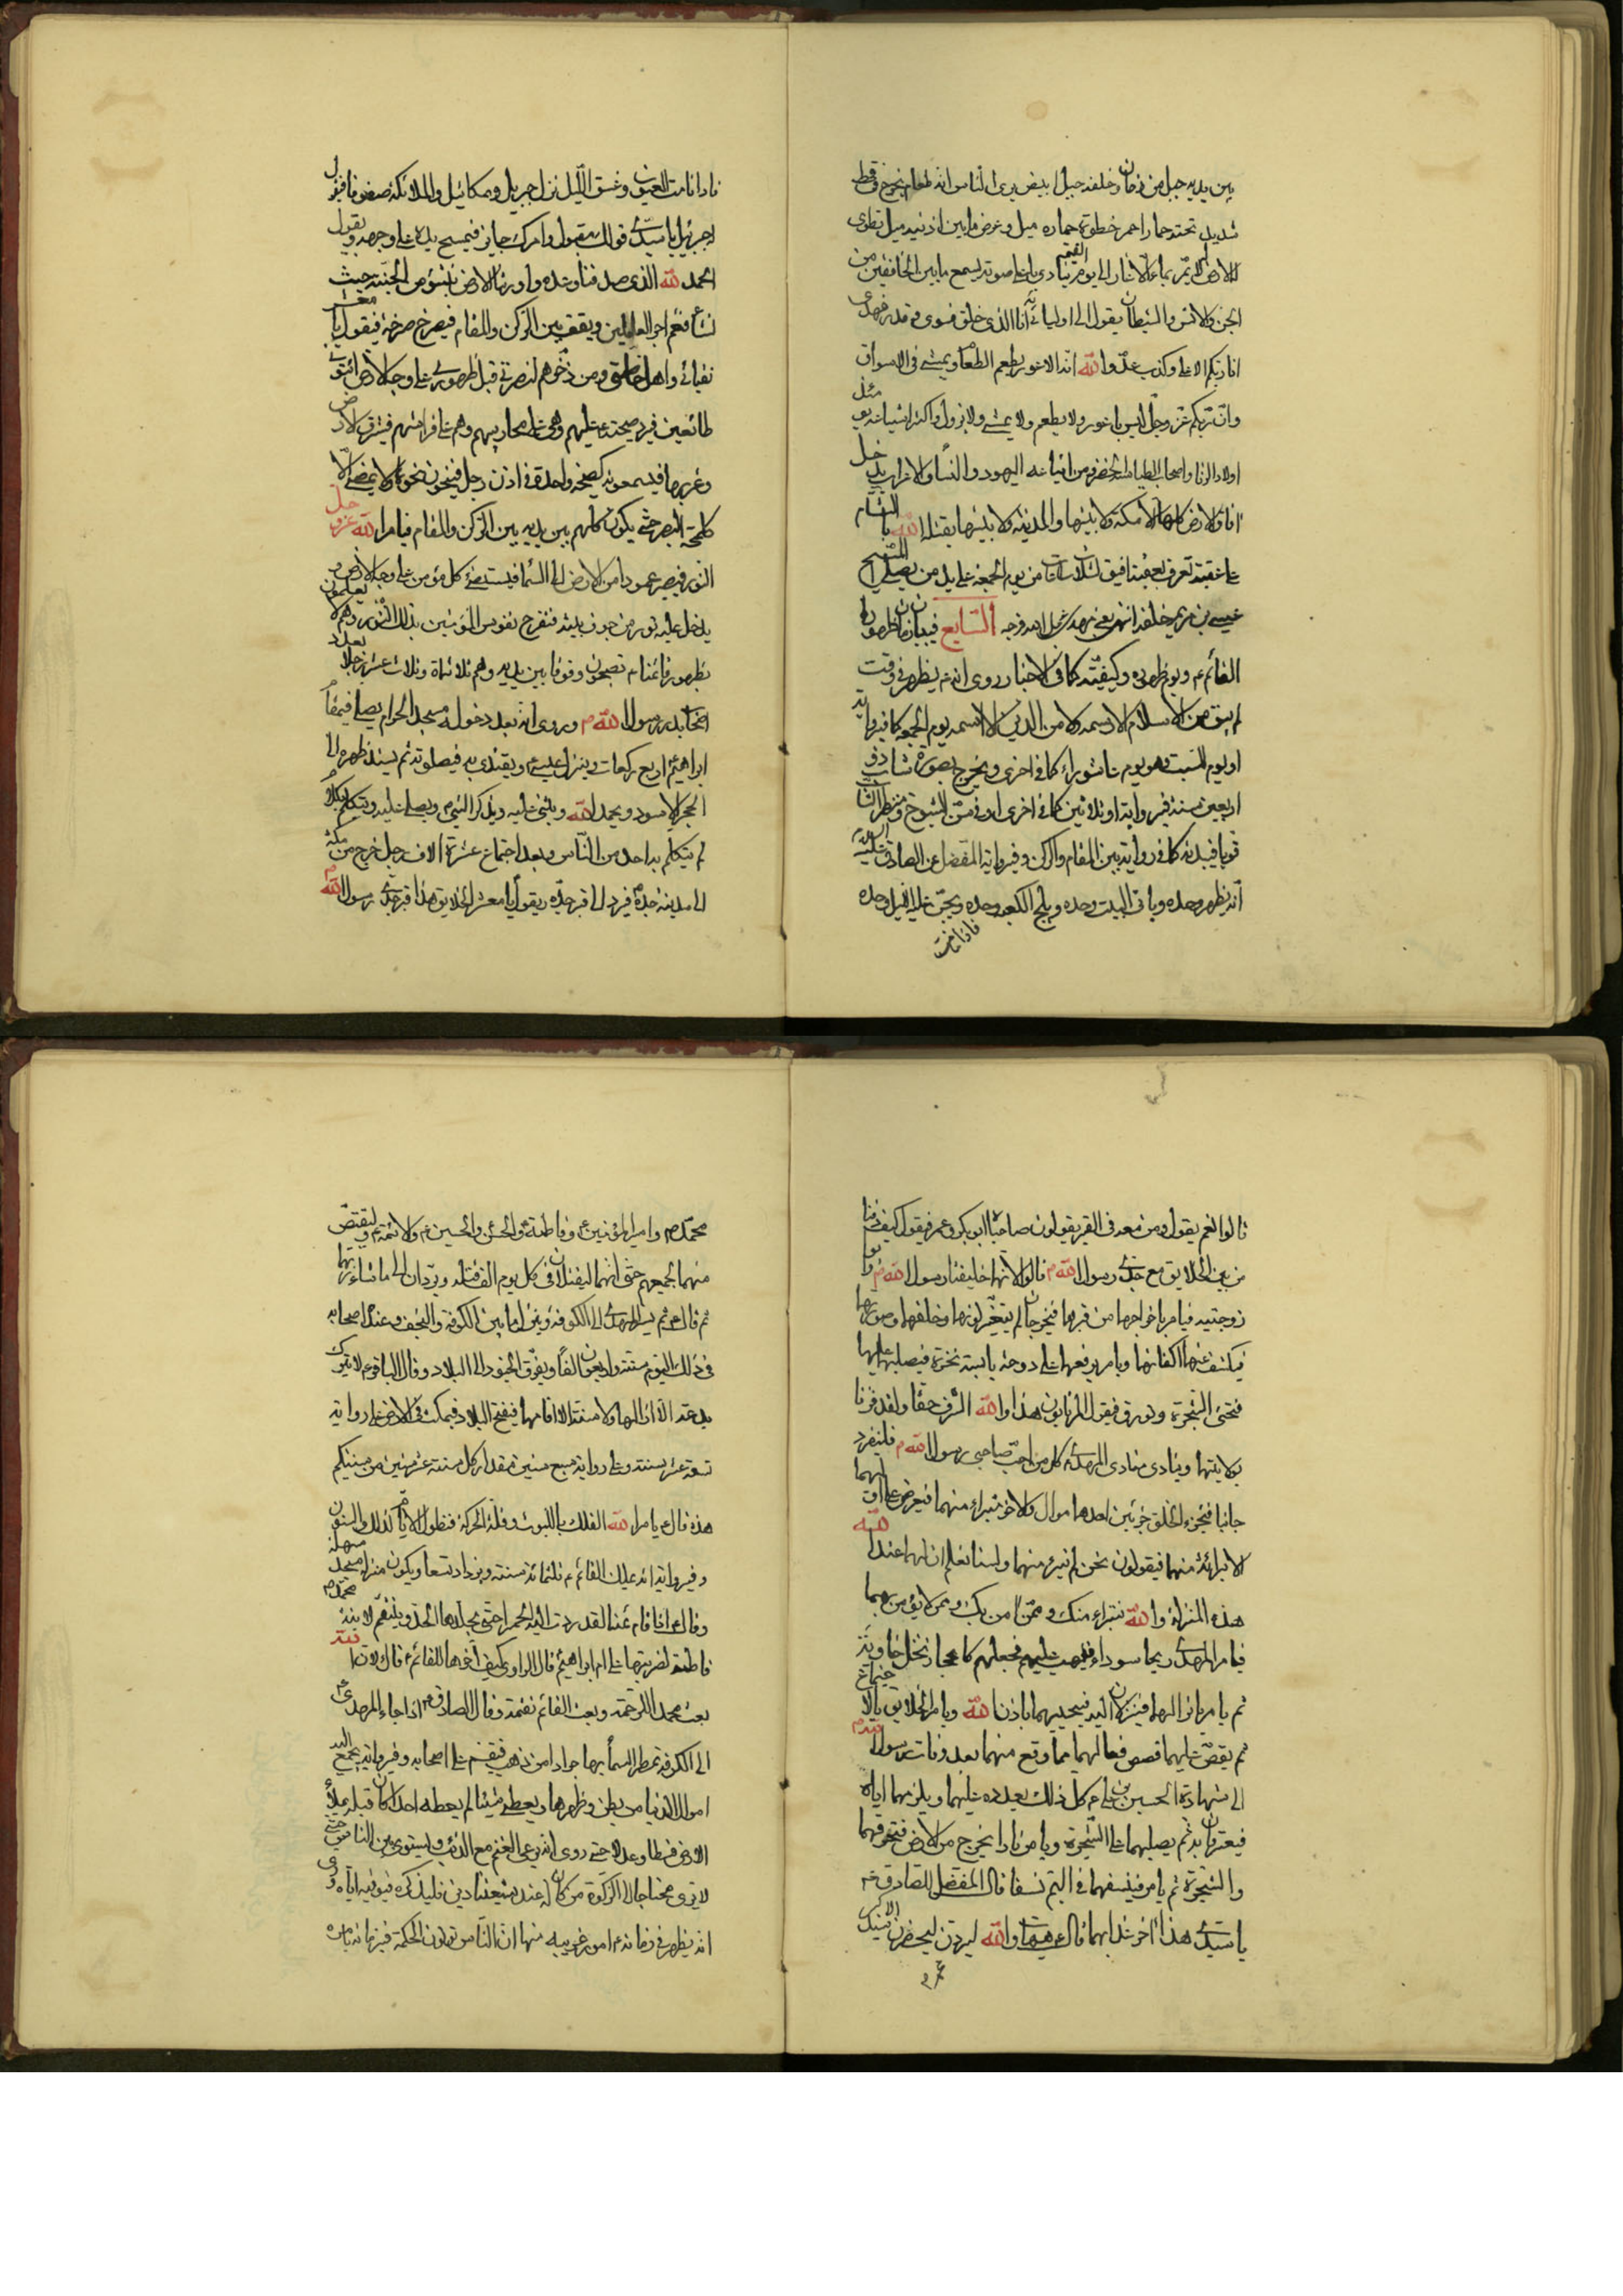 بين يديه جبل من دخان وخلفه جبل ابيض يرى الناس انه طعام يخرج في قحط
شديد تحته حمار احمر خطوة حماره ميل وعرض ما بين اذنيه ميل تطوى
له الارض لا يمر بماء الا غار الى يوم القيمة ينادي باعلى صوته يسمع ما بين الخافقين من
الجن والانس والشيطان يقول الي اوليائي انا الذي خلق فسوى وقدر فهدى
انا ربكم الاعلى وكذب عدو الله انه الاعور يطعم الطعام ويمشي في الاسواق
وان ربكم عز وجل ليس باعور ولا يطعم ولا يمشي ولا يزول واكثر اشياعه يومئذ
اولاد الزنا واصحاب الطيالسة الخضر ومن اتباعه اليهود والنساء والاعراب يدخل
افاق الارض كلها الا مكة ولابتيها والمدينة ولابتيها يقتله الله بالشام
على عقبة تعرف بعقبة افيق لثلاث ساعات من يوم الجمعة على يد من يصلي المسيح
عيسى بن مريم خلفه انتهى يعني مهدي عجل الله فرجه السابع في بيان زمان ظهور
القائم ع ويوم ظهوره وكيفيته كما في الاخبار روي انه ع يظهر في وقت
لم يبق من الاسلام الا رسمه ولا من الدين الا اسمه يوم الجمعة كما في رواية
او يوم السبت وهو يوم عاشوراء كما في اخرى ويخرج بصورة شاب ذو
اربعين سنة في رواية او ثلاثين كما في اخرى او في سن الشيوخ ومنظر الشباب
قويا في بدنه كما في رواية بين المقام والركن وفي رواية المفضل عن الصادق عليه السلام
انه يظهر وحده ويأتي البيت وحده ويلج الكعبة وحده ويجن عليه الليل وحده
فاذا نامت
فاذا نامت العيون وغسق الليل نزل جبريل وميكائيل والملائكة صفوفا فيقول
له جبرئيل يا سيدي قولك مقبول وامرك جايز فيمسح يده على وجهه ويقول
الحمد لله الذي صدقنا وعده واورثنا الارض نتبوء من الجنة حيث
نشاء فنعم اجر العاملين ويقف بين الركن والمقام فيصرخ صرخة فيقول يا معشر
نقبائي واهل خاصتي ومن ذخرهم لنصرتي قبل ظهوري على وجه الارض ائتوني
طائعين فيرد صيحته عليهم وهم على محاريبهم وهم على فراشهم في شرق الارض
وغربها فيسمعونه كصيحة واحدة في اذن رجل فيجيئون نحوها ولا يمضي الا
كلمحة البصر حتى يكون كلهم بين يديه بين الركن والمقام فيامر الله عز وجل
النور فيصير عمودا من الارض الى السماء فيستضئ كل مؤمن على وجه الارض و
يدخل عليه نور من جوف بيته فتفرح نفوس المؤمنين بذلك النور وهم لا يعلمون
بظهور قائمنا ع ثم يصبحون وقوفا بين يديه وهم ثلاثمأة وثلاث عشر رجلا بعدد
اصحاب بدر رسول الله ص وروي انه بعد دخوله مسجد الحرام يصلي في مقام
ابراهيم ع اربع ركعات وينزل عيسى ع ويقتدي به في صلوته ثم يسند ظهره الى
الحجر الاسود ويحمد الله ويثني عليه ويذكر النبي ص ويصلي عليه ويتكلم بكلام
لم يتكلم به احد من الناس وبعد اجتماع عشرة الاف رجل خرج من مكة
الى مدينة جده فيرد الى قبر جده ويقول يا معشر الخلايق هذا قبر جدي رسول الله ص
قالوا نعم يقول ومن معه في القبر يقولون صاحباه ابو بكر وعمر فيقول كيف دفنا
من بين الخلايق مع جدي رسول الله ص قالوا لانهما خليفتا رسول الله ص وابوا
زوجتيه فيامر باخراجهما من قبرهما فيخرجان لم يتغير لونهما وخلقهما وصورتهما
فيكشف عنهما اكفانهما ويامر برفعهما على دوحة يابسة نخرة فيصلبهما عليها
فتحيى الشجرة وتورق فيقول المرتابون هذا والله الشرف حقا ولقد فزنا
بولايتهما وينادي منادي المهدي ع كل من احب صاحبي رسول الله ص فلينفرد
جانبا فتجزء الخلق جزئين احدهما موال والاخر متبراء منهما فيعرض على اوليائهما
البرائة منهما فيقولون نحن لم نتبرء منهما ولسنا نعلم ان لهما عند الله
هذه المنزلة والله نتبراء منك وممن امن بك وممن لا يؤمن بهما
فيامر المهدي ريحا سوداء فتهب عليهم فجعلهم كاعجاز نخل خاوية
ثم يامر بانزالهما فينزلان اليه فيحييهما باذن الله ويامر الخلايق بالاجتماع
ثم يقص عليهما قصص فعالهما مما وقع منهما بعد وفات رسول الله ص
الى شهادة الحسين بن علي ع كل ذلك يعدده عليهما ويلزمهما اياه
فيعترفان به ثم يصلبهما على الشجرة ويامر نارا يخرج من الارض فتحرقهما
والشجرة ثم يامر فينسفهما في اليم نسفا قال المفضل للصادق ع
يا سيدي هذا اخر عذابهما قال ع هيهات والله ليردن ليحضرن السيد الاكبر
محمد ص وامير المؤمنين ع وفاطمة ع والحسن والحسين ع والائمة ع وليقتص
منهما بجميعهم حتى انهما ليقتلان في كل يوم الف قتلة ويردان الى ما شاء ربهما
ثم قال ع ثم يسير المهدي ع الى الكوفة وينزل ما بين الكوفة والنجف وعنده اصحابه
في ذلك اليوم ستة واربعون الفا ويفرق الجنود الى البلاد وقال الباقر ع لا يترك
بدعة الا ازالها ولا سنة الا اقامها فيفتح البلاد فيمكث في الارض على رواية
تسعة عشر سنة وعلى رواية سبع سنين مقدار كل سنة عشر سنين من سنينكم
هذه قال ع يامر الله الفلك باللبوث وقلة الحركة فتطول الايام كذلك والسنون
وفي رواية انه يملك القائم ع ثلثمائة سنة ويزداد تسعا ويكون منزله مسجد سهلة
وقال ع اذا قام قائمنا لقد ردت اليه الحميرا حتى يجلدها الحد وينتقم لابنة محمد ص
فاطمة لفريتها على ام ابراهيم قال الراوي كيف اخرها للقائم ع قال لان الله
بعث محمدا للرحمة وبعث القائم نقمة وقال الصادق ع اذا جاء المهدي ع
الى الكوفة تمطر السماء بها جرادا من ذهب فيقسم على اصحابه وفي رواية يجمع اليه
اموال الدنيا من بطن وظهرها ويعطي شيئا لم يعطه احد كان قبله ويملأ
الارض قسطا وعدلا حتى روي انه يرعى الغنم مع الذئب ويستوي بين الناس حتى
لا يرى محتاجا الى الزكوة من كان له عند شيعتنا دين فليذكره فيوفيه اياه وروي
انه يظهر في زمانه ع امور غريبة منها ان الناس يؤتون الحكمة في زمانه